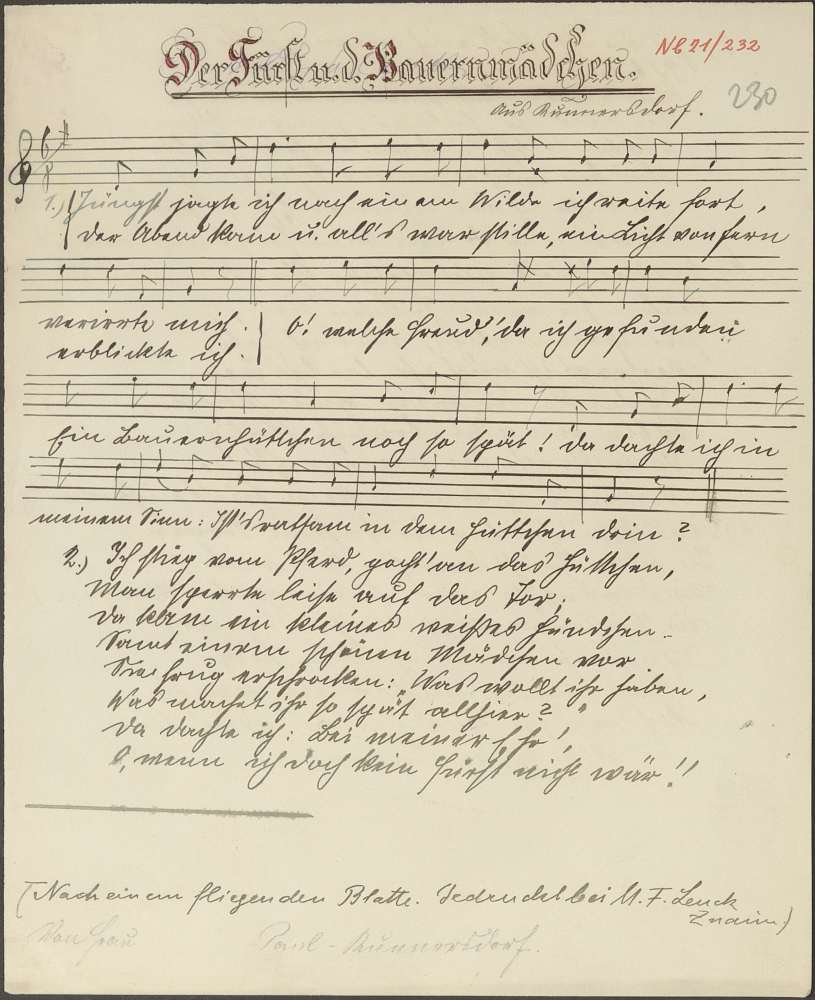 Der Fürst u. d. Bauernmädchen.
Nb 21/232
230
Aus Kunnersdorf.
1.) Jüngst jagte ich nach einem Wilde ich reite fort,
der Abend kam u. all's war stille, ein Licht von fern
verirrte mich.
erblickte ich.
O! welche Freud', da ich gefunden
Ein Bauernhüttchen noch so spät! Da dachte ich in
meinem Sinn: Ist's ratsam in dem Hüttchen drin?
2.) Ich stieg vom Pferd, pocht' an das Hüttchen,
Man sperrte leise auf das Tor;
Da kam ein kleines weißes Hündchen
Samt einem schönen Mädchen vor
Sie frug erschrocken: „Was wollt ihr haben,
Was machet ihr so spät allhier?"
Da dachte ich: Bei meiner Ehr',
O, wenn ich doch kein Fürst nicht wär'!!
(Nach einem fliegenden Blatte. Gedruckt bei M. F. Lenck
Znaim)
Von Frau Paul - Kunnersdorf.